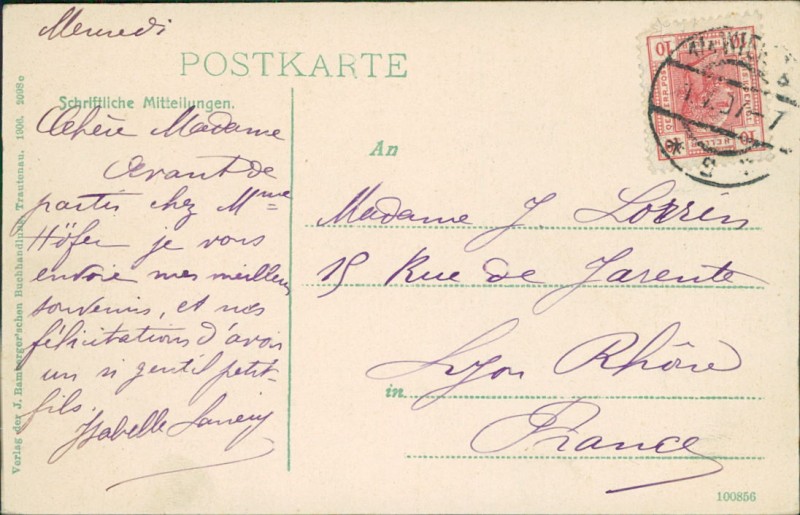 Mercredi
POSTKARTE
Schriftliche Mitteilungen.
Chère Madame
Avant de
partir chez Mme
Höfer je vous
envoie mes meilleurs
souvenirs, et mes
félicitations d'avoir
un si gentil petit-
fils.
Isabelle
Verlag der J. Bamberger'schen Buchhandlung, Trautenau. 1906. 2098c
An
Madame J.
15 Rue de Jarente
Lyon Rhône
in
France
10 10
10 10
100856